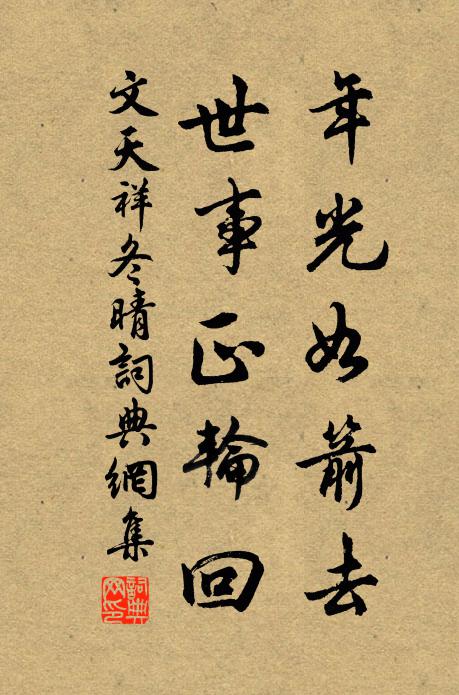 年光如箭去
世事正輪回
文天祥冬晴詞典網集
詞典網印